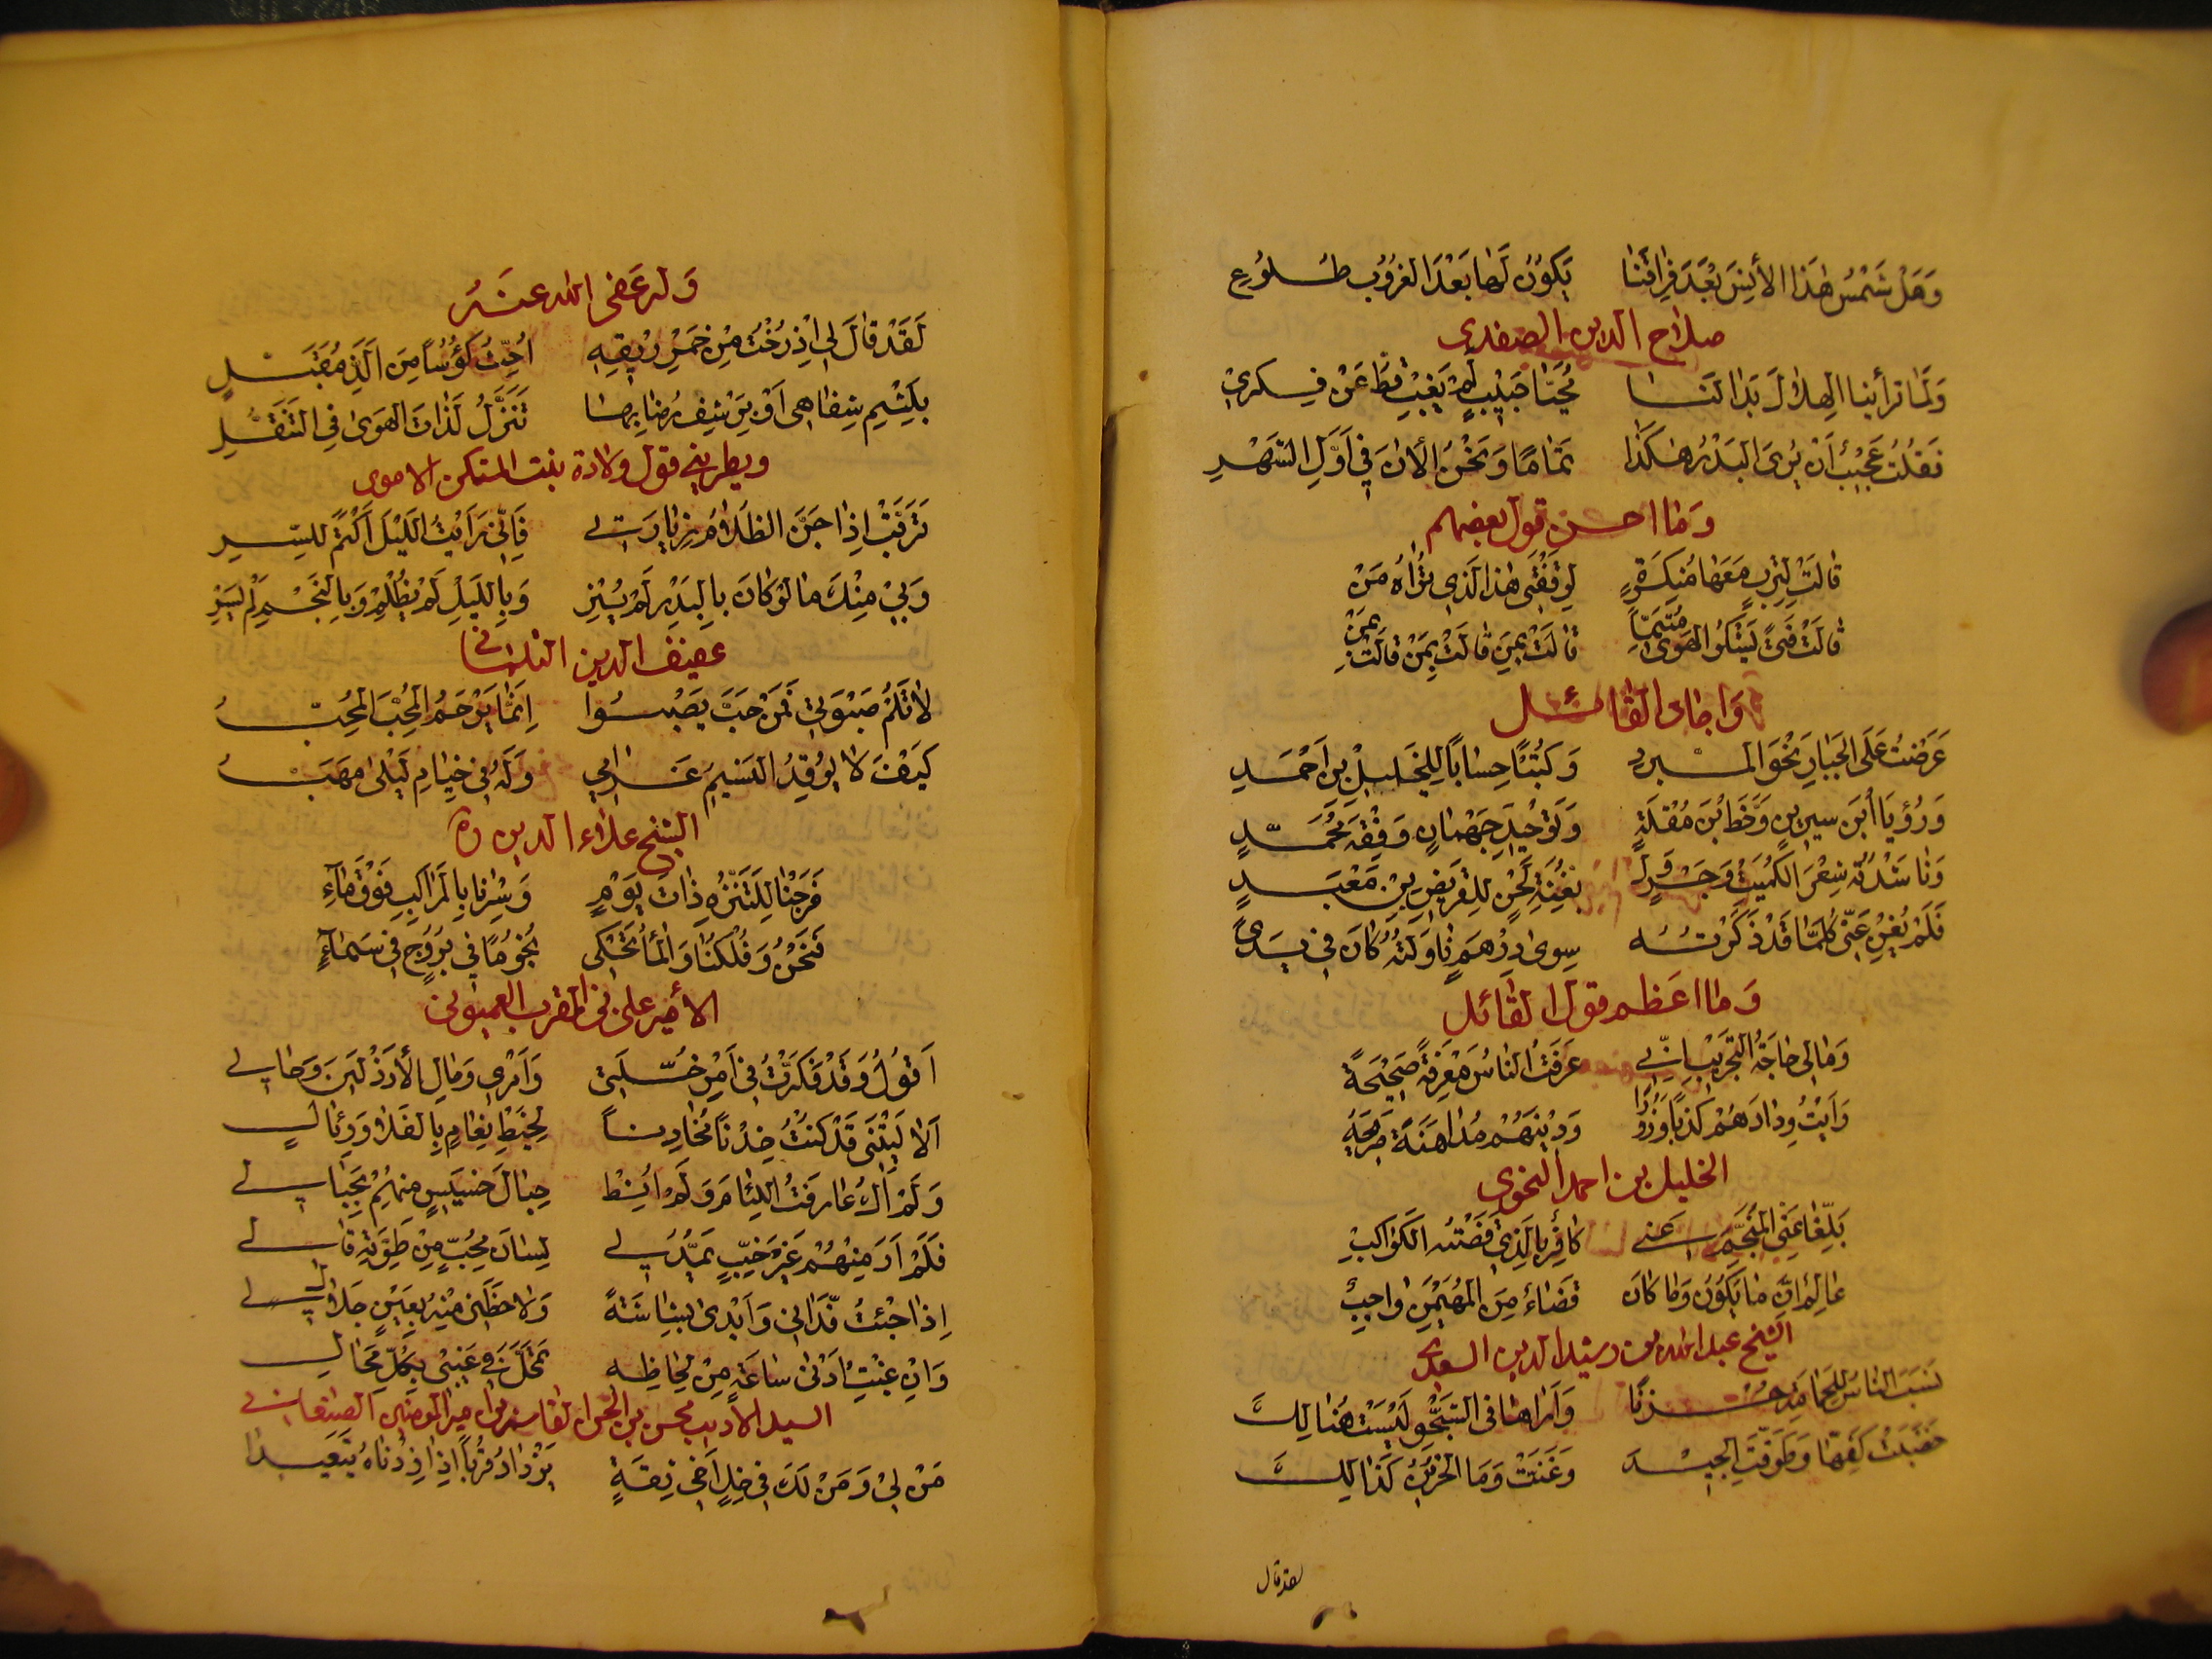 وَهَلْ شَمْسُ هٰذَا الأُنْسِ بَعْدَ فِرَاقِنَا يَكُونُ لَهَا بَعْدَ الغُرُوبِ طُلُوعِ
صلاح الدين الصفدي
وَلَمَّا تراأينا الهِلَالَ بَدَا لَنَا مُحَيَّا حَبِيْبٍ لَمْ يَغِبْ قَطُّ عَنْ فِكرِيْ
فَقُلْتُ عَجِيْبٌ أَنْ يُرَى البَدْرُ هٰكَذَا تَمَامًا وَنَحْنُ الْأٰنَ فِي أَوَّلِ الشَهْرِ
وَمَا احسن قول بعضهم
قَالَتْ لِتِرْبٍ مَعَهَا مُنْكِرَةٍ لِوَقْفَتِي هٰذَا الَّذِي نَرَاهُ مَنْ
قَالَتْ فَتىً يَشْكُو الهَوَى مُتَيَّمًا قَالَتْ بِمَنِ قَالَتْ بِمَنْ قَالَتْ بِمَنْ
وَاجاد القائل
عَرَضْتُ عَلَى الخَبَّازِ نَحْوَ المبرد وَكُتْبًا حِسَابًا لِلْخَلِيلِ بْنِ اَحْمَدِ
وَرُؤيَا اُبْنَ سِيرِينٍ وَخَطَّ ابْنَ مُقْلَةٍ وَتَوْحِيْدِ جَهْمَانٍ وَفِقْهَ مُحَمَّدٍ
وَنَاشَدْتُهُ شِعْرَ الكُمَيْتِ وَجَرْوَلٍ بِغُنَّةِ لَحْنٍ لِلْقَرِيضِ بْنِ مَعْبَدٍ
فَلَمْ يُغْنِ عَنِّي كُلَّمَا قَدْ ذَكَرْتُهُ سِوَى دِرْهَمٍ نَاوَلْتُهُ كَانَ فِي يَدِي
وَمَا اعَظم قول القَائل
وَمَالِي حَاجَةُ التَّجْرِيْبِ اِنِّي عَرَفْتُ النَاسَ مَعْرِفَةً صَحِيْحَةً
وَاَيْتُ وِدَادَهُمْ كَذِبًا وَزُورًا وَدِيْنَهُمْ مُدَاهَنَةً صَرِيحَةً
الخليل بن احمد النحوي
بَلِّغَا عَنِّي المُنَجِّمَ عَنِي كَافِرٌ بِالَّذِي قَضَتْهُ الكَوَاكِبْ
عَالِمٌ اَنَّ مَا يَكُونُ وَمَا كَانَ قَضَاءٌ مِنَ المُهَيْمِنِ وَاجِبٌ
الشيخ عبد الله بن رشيد الدين السعدي
نَسَبَ النَاسُ لِلْحَمَامَةِ حُزْنًا وَاَرَاهَا فِي الشَّجْوِ لَيْسَتْ هُنَالِكَ
خَضَبَتْ كَفَّهَا وَطَوَّقَتِ الجِيْدَ وَغَنَّتْ وَمَا الحَزِيْنُ كَذَالِكَ
لقد قال
وَله عَفى الله عنهُ
لَقَدْ قَالَ لِي اِذْ رُحْتُ مِنْ خَمْرِ رِيْقِهِ اُحِثُّ كُؤُسًا مِنَ اَلَذِّ مُقَبَّلٍ
بِلَثْمِ شِفَاهِي اَوْ بِرَشْفِ رُضَابِهَا تَنَزَّلُ لَذَّاتَ الهَوَى فِي التَنَقُّلِ
ويطربني قول ولادة بنت المستكن الاموي
تَرَقَّبْ اِذَا جَنَّ الظَلَامُ زِيَارَتِي فَاِنِّي رَاَيْتُ اللَيْلَ اَكْتَمَ للسِرِ
وَبِيْ مِنْكَ مَا لَوْ كَانَ بِالبَدْرِ لَمْ يُنِرْ وَبِاللَيْلِ لَمْ يُظْلِمْ وَبِالنَجْمِ لَمْ يَسْرِ
عفيف الدين التلمسانى
لَا تَلُمْ صَبْوَتِي فَمَنْ حَبَّ يَصْبُوا اِنَّمَا يَرْحَمُ المُحِبَّ المُحِبُّ
كَيْفَ لَا يُوقِدُ النَسِيْمُ غَرَامِي وَلَهُ فِي خِيَامِ لَيْلَى مَهَبُّ
الشيخ علاء الدين رح
خَرَجْنَا لِلتَنَزُّهِ ذَاتَ يَوْمٍ وَسِرْنَا بِالمَرَاكِبِ فَوْقَ مَاءِ
فَنَحْنُ وَفُلْكُنَا وَالمَاءُ تَحْكِي نُجُومًا فِي بُرُوجٍ فِي سَمَاءٍ
الأمير علي بن المقرب العيوني
اَقُولُ وَقَدْ فَكَّرْتُ فِي اَمْرِ خُلَّتِي وَاَمْرِي وَمَالِ الأَرْذَلِيْنَ وَحَالِي
اَلَا لَيْتَنِي قَدْ كُنْتُ خِدْنًا مُخَادِنًا لِخَيْطِ نِعَامٍ بِالفَلَا وَرِئَالِ
وَلَمْ اَكُ عَارَفْتُ اللِئَامَ وَلَمْ اُنِطْ حِبَالَ خَسِيْسٍ مِنْهُمُ بِحِبَالِي
فَلَمْ اَرَ مِنْهُمْ غَيْرَ خِبٍّ يَمُدُّ لِي لِسَانَ مُحِبٍّ مِنْ طَوِيَّةِ قَالِي
اِذَا جِئْتُ فَدَّانِي وَاَبْدَى بَشَاشَةً وَلَاحَظَنِي مِنْهُ بِعَيْنِ جَلَالِ
وَاِنْ غِبْتُ اَدْنَى سَاعَةٍ مِنْ لِحَاظِهِ تَمَحَّلَ فِي عَيْبِي بِكُلِّ مَحَالِ
السيد الأديب محسن بن الحسن القاسم بن امير المومنين الصنعاني
مَنْ لِيْ وَمَنْ لَكَ فِي خِلٍّ اَخِي ثِقَةٍ يَزْدَادُ قُرْبًا اِذَا زِدْنَاهُ تَبْعِيدَا